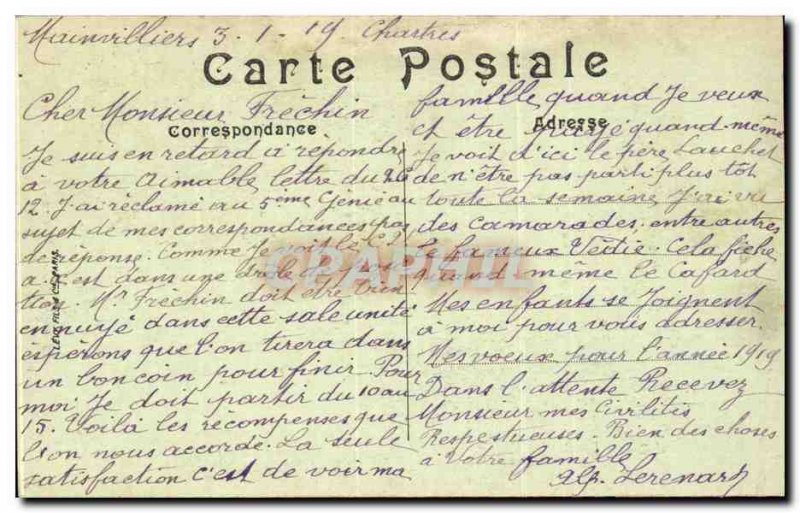 Mainvilliers 3-1-19 Chartres
Carte Postale
Cher Monsieur Fréchin
Correspondance
Je suis en retard à répondre
à votre Aimable lettre du 26
12. J'ai réclamé au 5ème Génie au
sujet de mes correspondances pas
de réponse. Comme Je voit le C.
a. c'est dans une drole de posi
tion. Mr Fréchin doit être bien
ennuyé dans cette sale unité
espérons que l'on tirera dans
un bon coin pour finir. Pour
moi Je doit partir du 10 au
15. Voilà les récompenses que
l'on nous accorde. La seule
satisfaction c'est de voir ma
famille quand Je veux
Adresse
et être quand même
Je voit d'ici le père Lauchet
de n'être pas parti plus tôt
toute la semaine J'ai vu
des camarades, entre autres
le fameux Cela fiche
quand même le Cafard
Mes enfants se Joignent
à moi pour vous adresser.
Mes voeux pour l'année 1919
Dans l'attente Recevez
Monsieur mes Civilités
Respectueuses. Bien des choses
à Votre famille
Alp. Lerenard
CPAPHIL